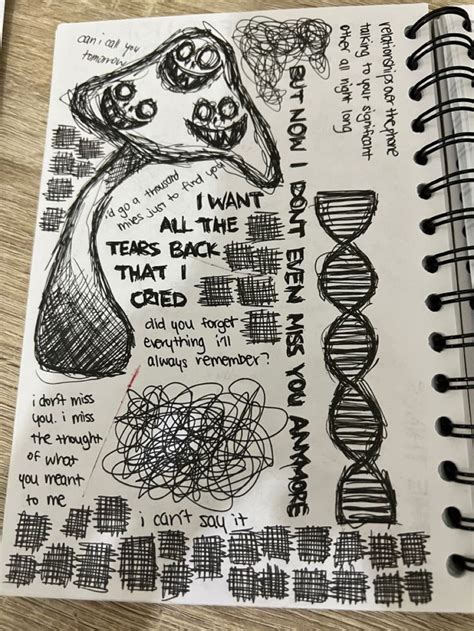 can i call you
tomorrow
relationships over the phone
talking to your significant
other all night
long
i'd go a thousand
miles just to find you
I WANT
ALL THE
TEARS BACK
THAT I
CRIED
BUT NOW I DONT EVEN MISS YOU ANYMORE
did you forget
everything i'll
always remember?
i don't miss
you. i miss
the thought
of what
you meant
to me
i can't say it